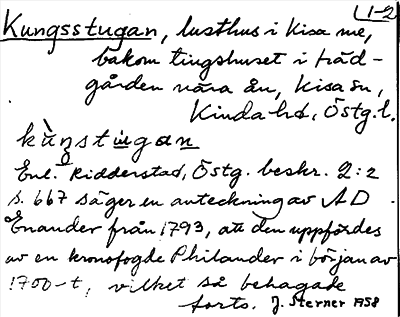 1-2
Kungsstugan, lusthus i Kisa me,
bakom tingshuset i träd-
gården nära ån, Kisa sn,
Kinda hd, Östg. l.
kùngstugan
Enl. Ridderstad, Östg. beskr. 2:2
s. 667 säger en anteckning av A D
Enander från 1793, att den uppfördes
av en kronofogde Philander i början av
1700-t, vilket så behagade
forts. J. Sterner 1958